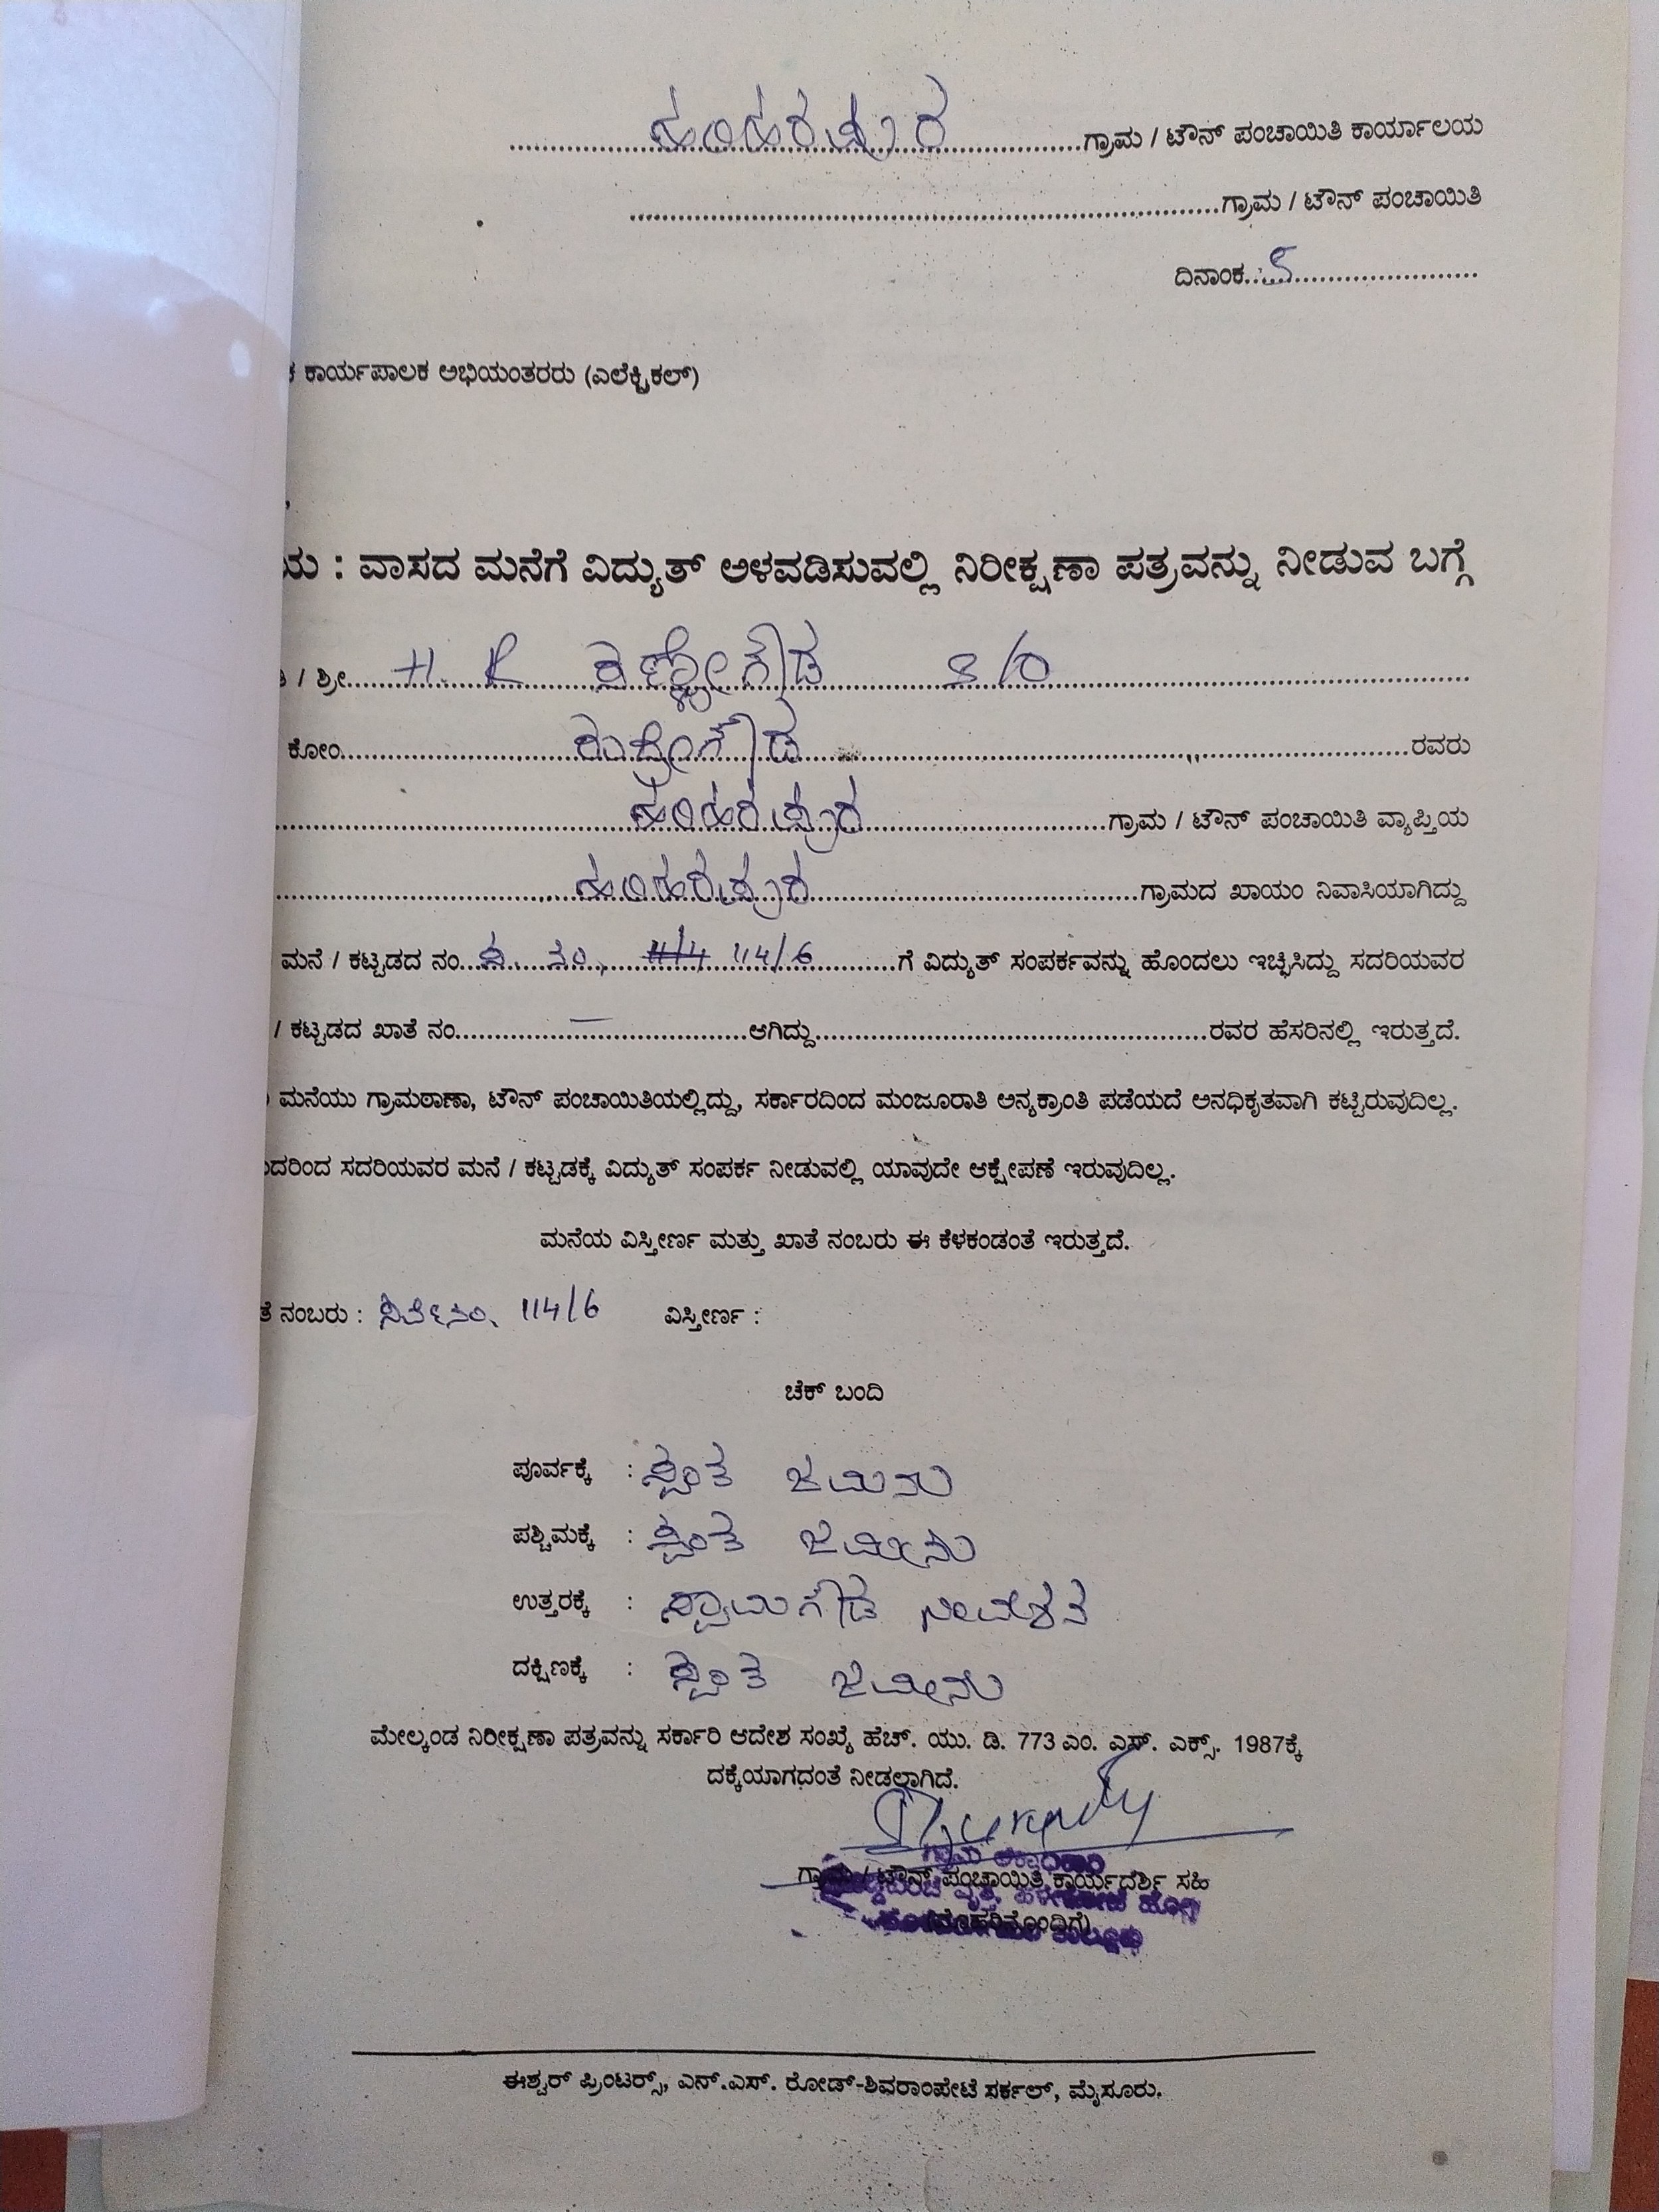 ಹರಿಹರಪುರ ಗ್ರಾಮ / ಟೌನ್ ಪಂಚಾಯಿತಿ ಕಾರ್ಯಾಲಯ
ಗ್ರಾಮ / ಟೌನ್ ಪಂಚಾಯಿತಿ
ದಿನಾಂಕ
ಕಾರ್ಯಪಾಲಕ ಅಭಿಯಂತರರು (ಎಲೆಕ್ಟ್ರಿಕಲ್)
: ವಾಸದ ಮನೆಗೆ ವಿದ್ಯುತ್ ಅಳವಡಿಸುವಲ್ಲಿ ನಿರೀಕ್ಷಣಾ ಪತ್ರವನ್ನು ನೀಡುವ ಬಗ್ಗೆ
/ ಶ್ರೀ H. R S/O
ಕೋಂ ರುದ್ರೇಗೌಡ ರವರು
ಹರಿಹರಪುರ ಗ್ರಾಮ / ಟೌನ್ ಪಂಚಾಯಿತಿ ವ್ಯಾಪ್ತಿಯ
ಹರಿಹರಪುರ ಗ್ರಾಮದ ಖಾಯಂ ನಿವಾಸಿಯಾಗಿದ್ದು
ಮನೆ / ಕಟ್ಟಡದ ನಂ. ನಂ. 114/6 ಗೆ ವಿದ್ಯುತ್ ಸಂಪರ್ಕವನ್ನು ಹೊಂದಲು ಇಚ್ಛಿಸಿದ್ದು ಸದರಿಯವರ
/ ಕಟ್ಟಡದ ಖಾತೆ ನಂ. — ಆಗಿದ್ದು ರವರ ಹೆಸರಿನಲ್ಲಿ ಇರುತ್ತದೆ.
ಮನೆಯು ಗ್ರಾಮಠಾಣಾ, ಟೌನ್ ಪಂಚಾಯಿತಿಯಲ್ಲಿದ್ದು, ಸರ್ಕಾರದಿಂದ ಮಂಜೂರಾತಿ ಅನ್ಯಕ್ರಾಂತಿ ಪಡೆಯದೆ ಅನಧಿಕೃತವಾಗಿ ಕಟ್ಟಿರುವುದಿಲ್ಲ.
ದರಿಂದ ಸದರಿಯವರ ಮನೆ / ಕಟ್ಟಡಕ್ಕೆ ವಿದ್ಯುತ್ ಸಂಪರ್ಕ ನೀಡುವಲ್ಲಿ ಯಾವುದೇ ಆಕ್ಷೇಪಣೆ ಇರುವುದಿಲ್ಲ.
ಮನೆಯ ವಿಸ್ತೀರ್ಣ ಮತ್ತು ಖಾತೆ ನಂಬರು ಈ ಕೆಳಕಂಡಂತೆ ಇರುತ್ತದೆ.
ತೆ ನಂಬರು : ಸರ್ವೆ ನಂ. 114/6 ವಿಸ್ತೀರ್ಣ :
ಚೆಕ್ ಬಂದಿ
ಪೂರ್ವಕ್ಕೆ : ಸ್ವಂತ ಜಮಿನು
ಪಶ್ಚಿಮಕ್ಕೆ : ಸ್ವಂತ ಜಮೀನು
ಉತ್ತರಕ್ಕೆ : ಸ್ವಾಮಿಗೌಡ ನಿವೇಶನ
ದಕ್ಷಿಣಕ್ಕೆ : ಸ್ವಂತ ಜಮೀನು
ಮೇಲ್ಕಂಡ ನಿರೀಕ್ಷಣಾ ಪತ್ರವನ್ನು ಸರ್ಕಾರಿ ಆದೇಶ ಸಂಖ್ಯೆ ಹೆಚ್. ಯು. ಡಿ. 773 ಎಂ. ಎಸ್. ಎಕ್ಸ್. 1987ಕ್ಕೆ
ದಕ್ಕೆಯಾಗದಂತೆ ನೀಡಲಾಗಿದೆ.
ಗ್ರಾಮ / ಟೌನ್ ಪಂಚಾಯಿತಿ ಕಾರ್ಯದರ್ಶಿ ಸಹಿ
(ಮೊಹರಿನೊಂದಿಗೆ)
ಈಶ್ವರ್ ಪ್ರಿಂಟರ್ಸ್, ಎನ್.ಎಸ್. ರೋಡ್-ಶಿವರಾಂಪೇಟೆ ಸರ್ಕಲ್, ಮೈಸೂರು.